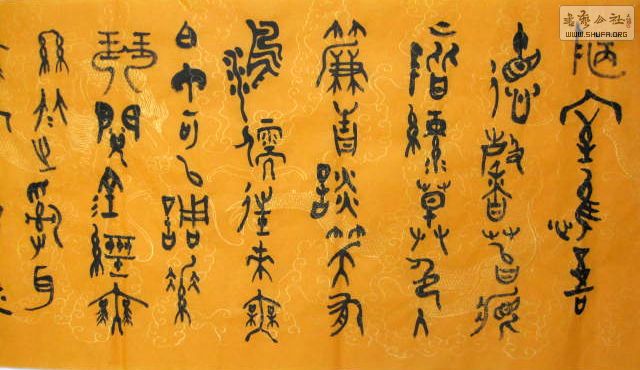 陋室惟吾
德馨苔痕
上階綠草色入
簾青談笑有
鴻儒往來無
白丁可以調素
琴閱金經無
絲竹之亂耳
书艺公社
WWW.SHUFA.ORG